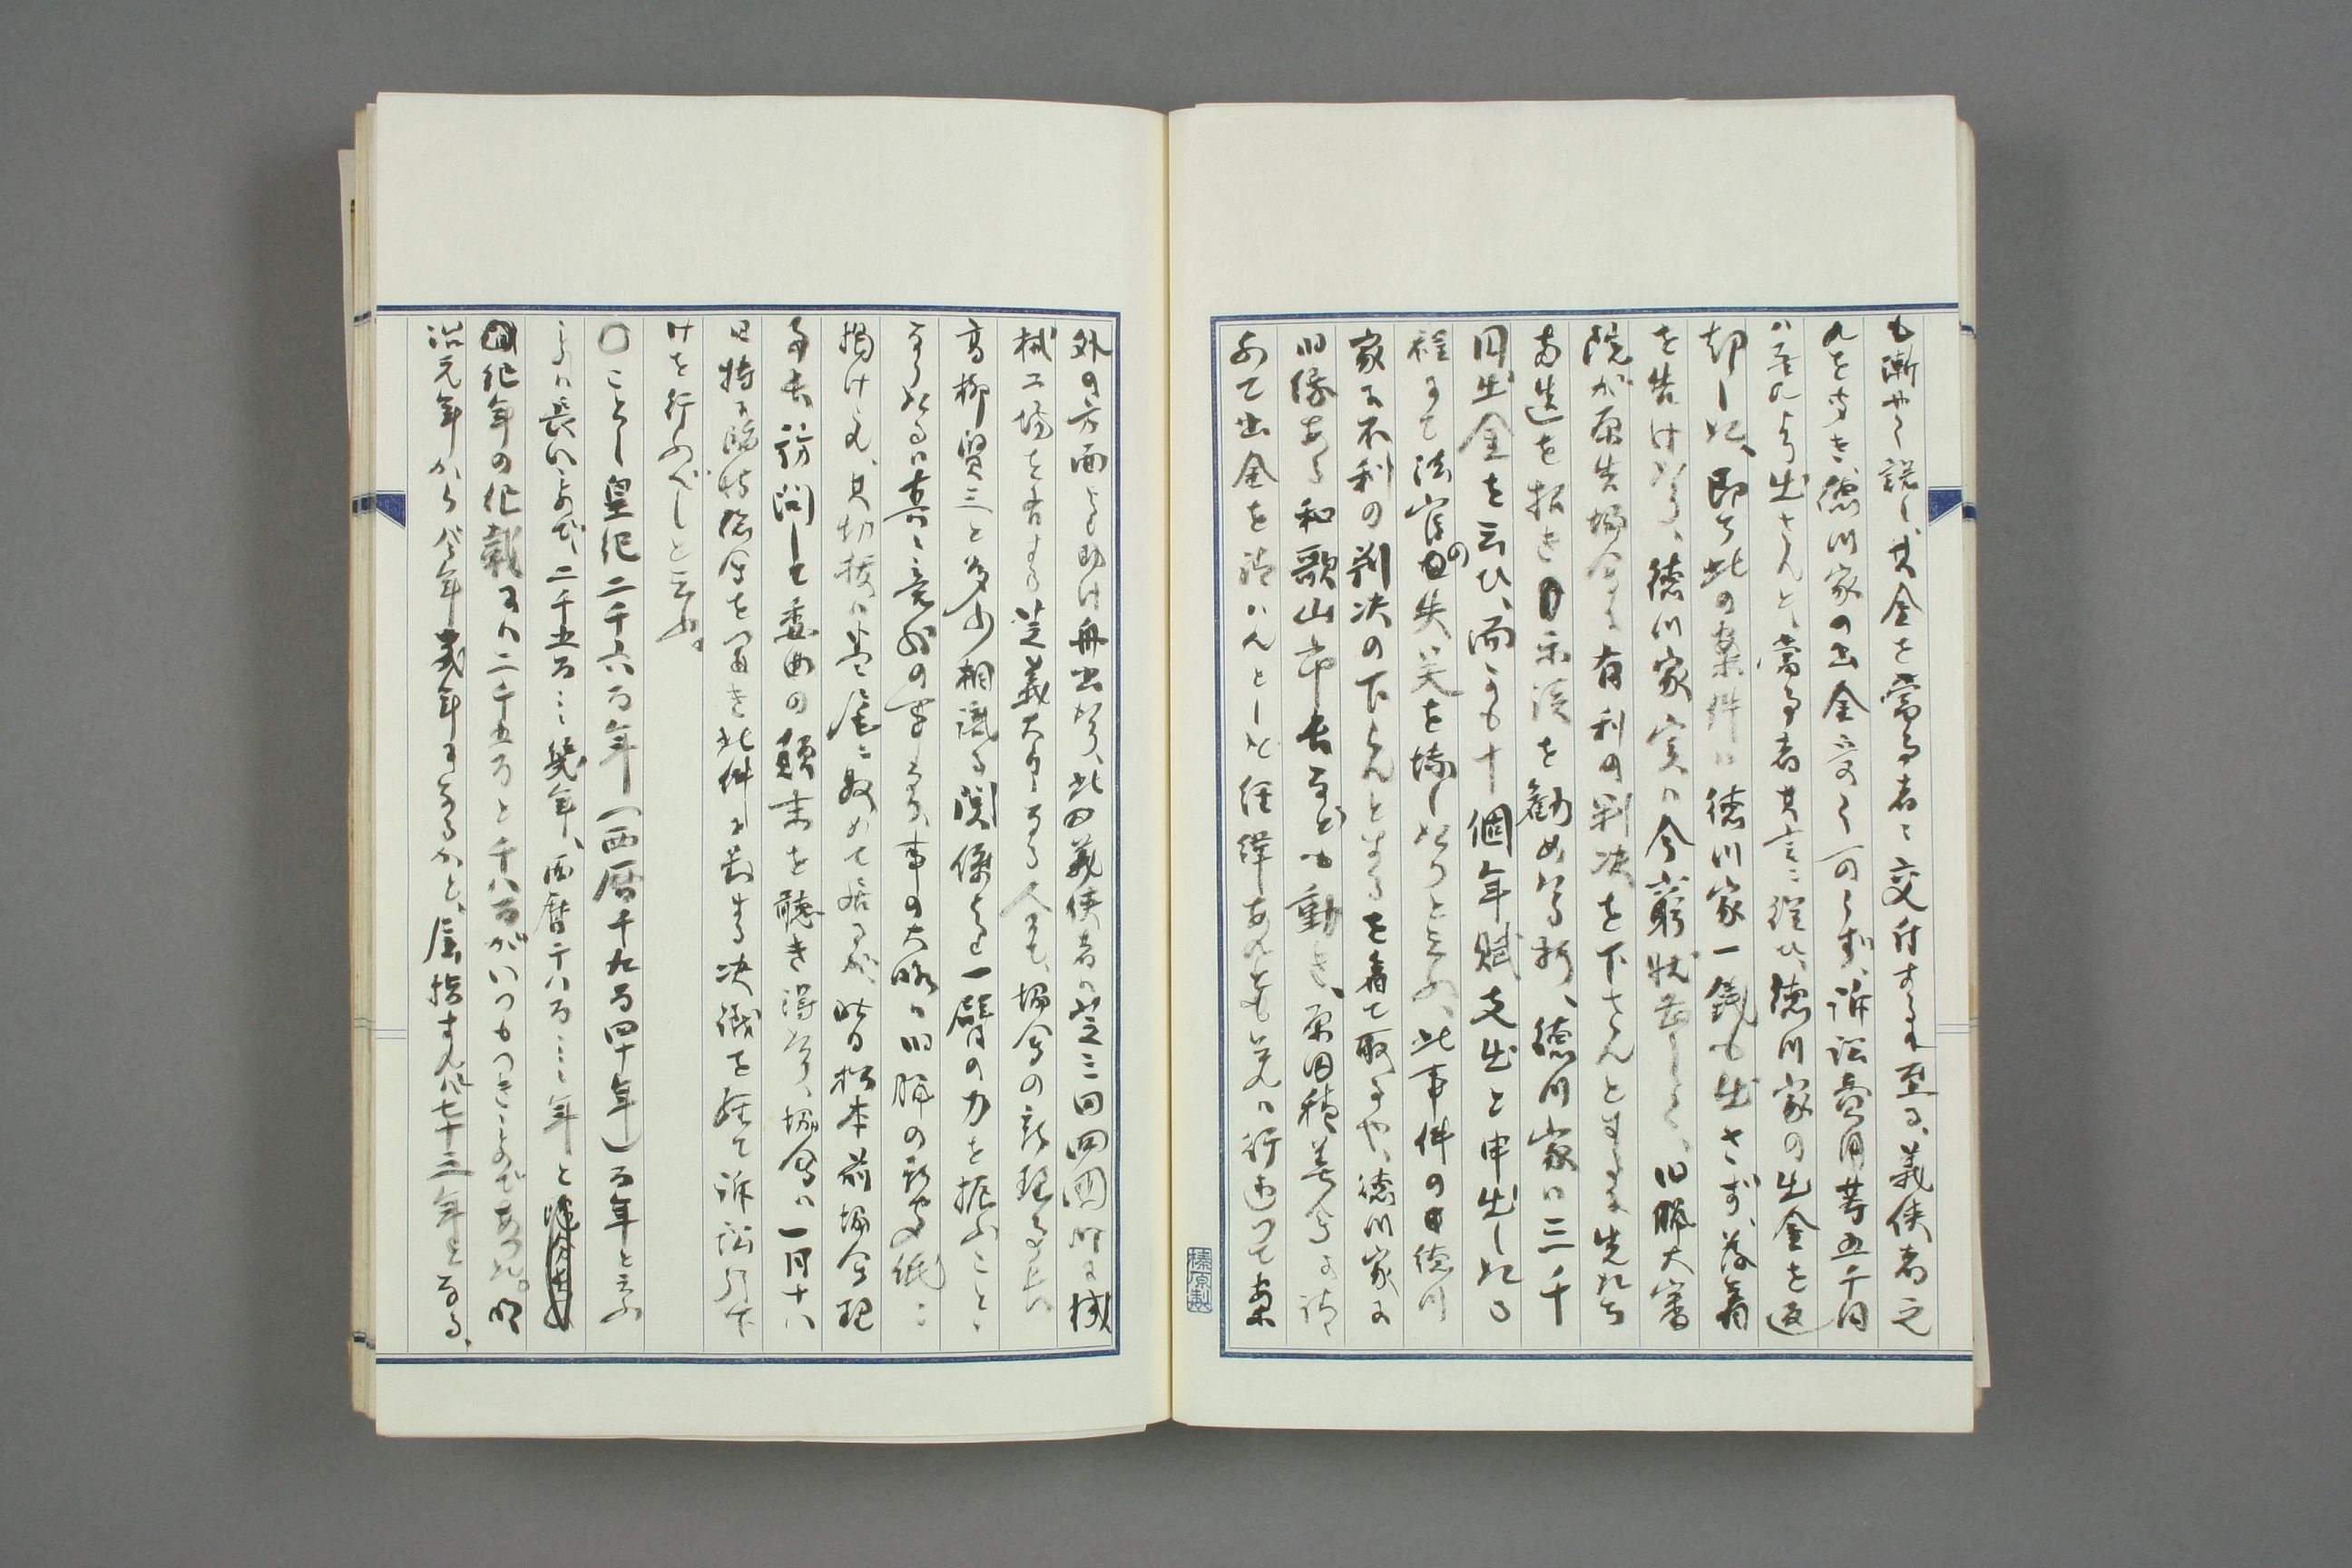 も漸やく説し、其金を當事者に交付するに至る、義侠者之
れをきき、徳川家の出金受く可らず、訴訟費用等五千円
ハ吾れより出さんと、當事者其言に從ひ、徳川家の出金を返
却しぬ、即ち此の案件ハ徳川家一銭も出さず、落着
を告けたり、徳川家実ハ今窮状甚しく、旧臘大審
院が原告協会に有利の判决を下さんとするに先たち
両造を招き示談を勧めたる折、徳川家ハ三千
円出金を云ひ、而かも十個年賦支出と申出しぬ
程にて法官の失笑を博したりと云ふ、此事件の徳川
家に不利の判决の下らんとするを着て取るや、徳川家に
旧縁ある和歌山市長なども動き、原田積善会に請
ふて出金を請ハんとした経緯あれども、之れハ行違つて案
外の方面より助け舟出たり、此の義侠者ハ芝三田四国町に機
械工場を有する芝義太郎なる人にて、協会の新理事長
高柳賢三と多少相識る関係より一臂の力を振ふことゝ
なりたるハ真に意外の事なる、事の大略ハ旧臘の新聞紙に
掲けられ、其切抜ハ巻尾に収めて居るが、昨日松本前協会理
事長訪問して委曲の顛末を聴き得たり、協会ハ一月十八
日特に臨時総会を開き此件に対する决議を経て訴訟引下
けを行ふべしと云ふ。
〇ことし皇紀二千六百年（西暦千九百四十年）百年と云ふ
ことハ長いようだ、二千五百…幾年、西暦千八百……年と
紀年の紀載するハ二千五百と千八百がいつもつきものであつた。明
治元年から今年幾年になるかと、屈指すれば七十三年となる、
榛原製